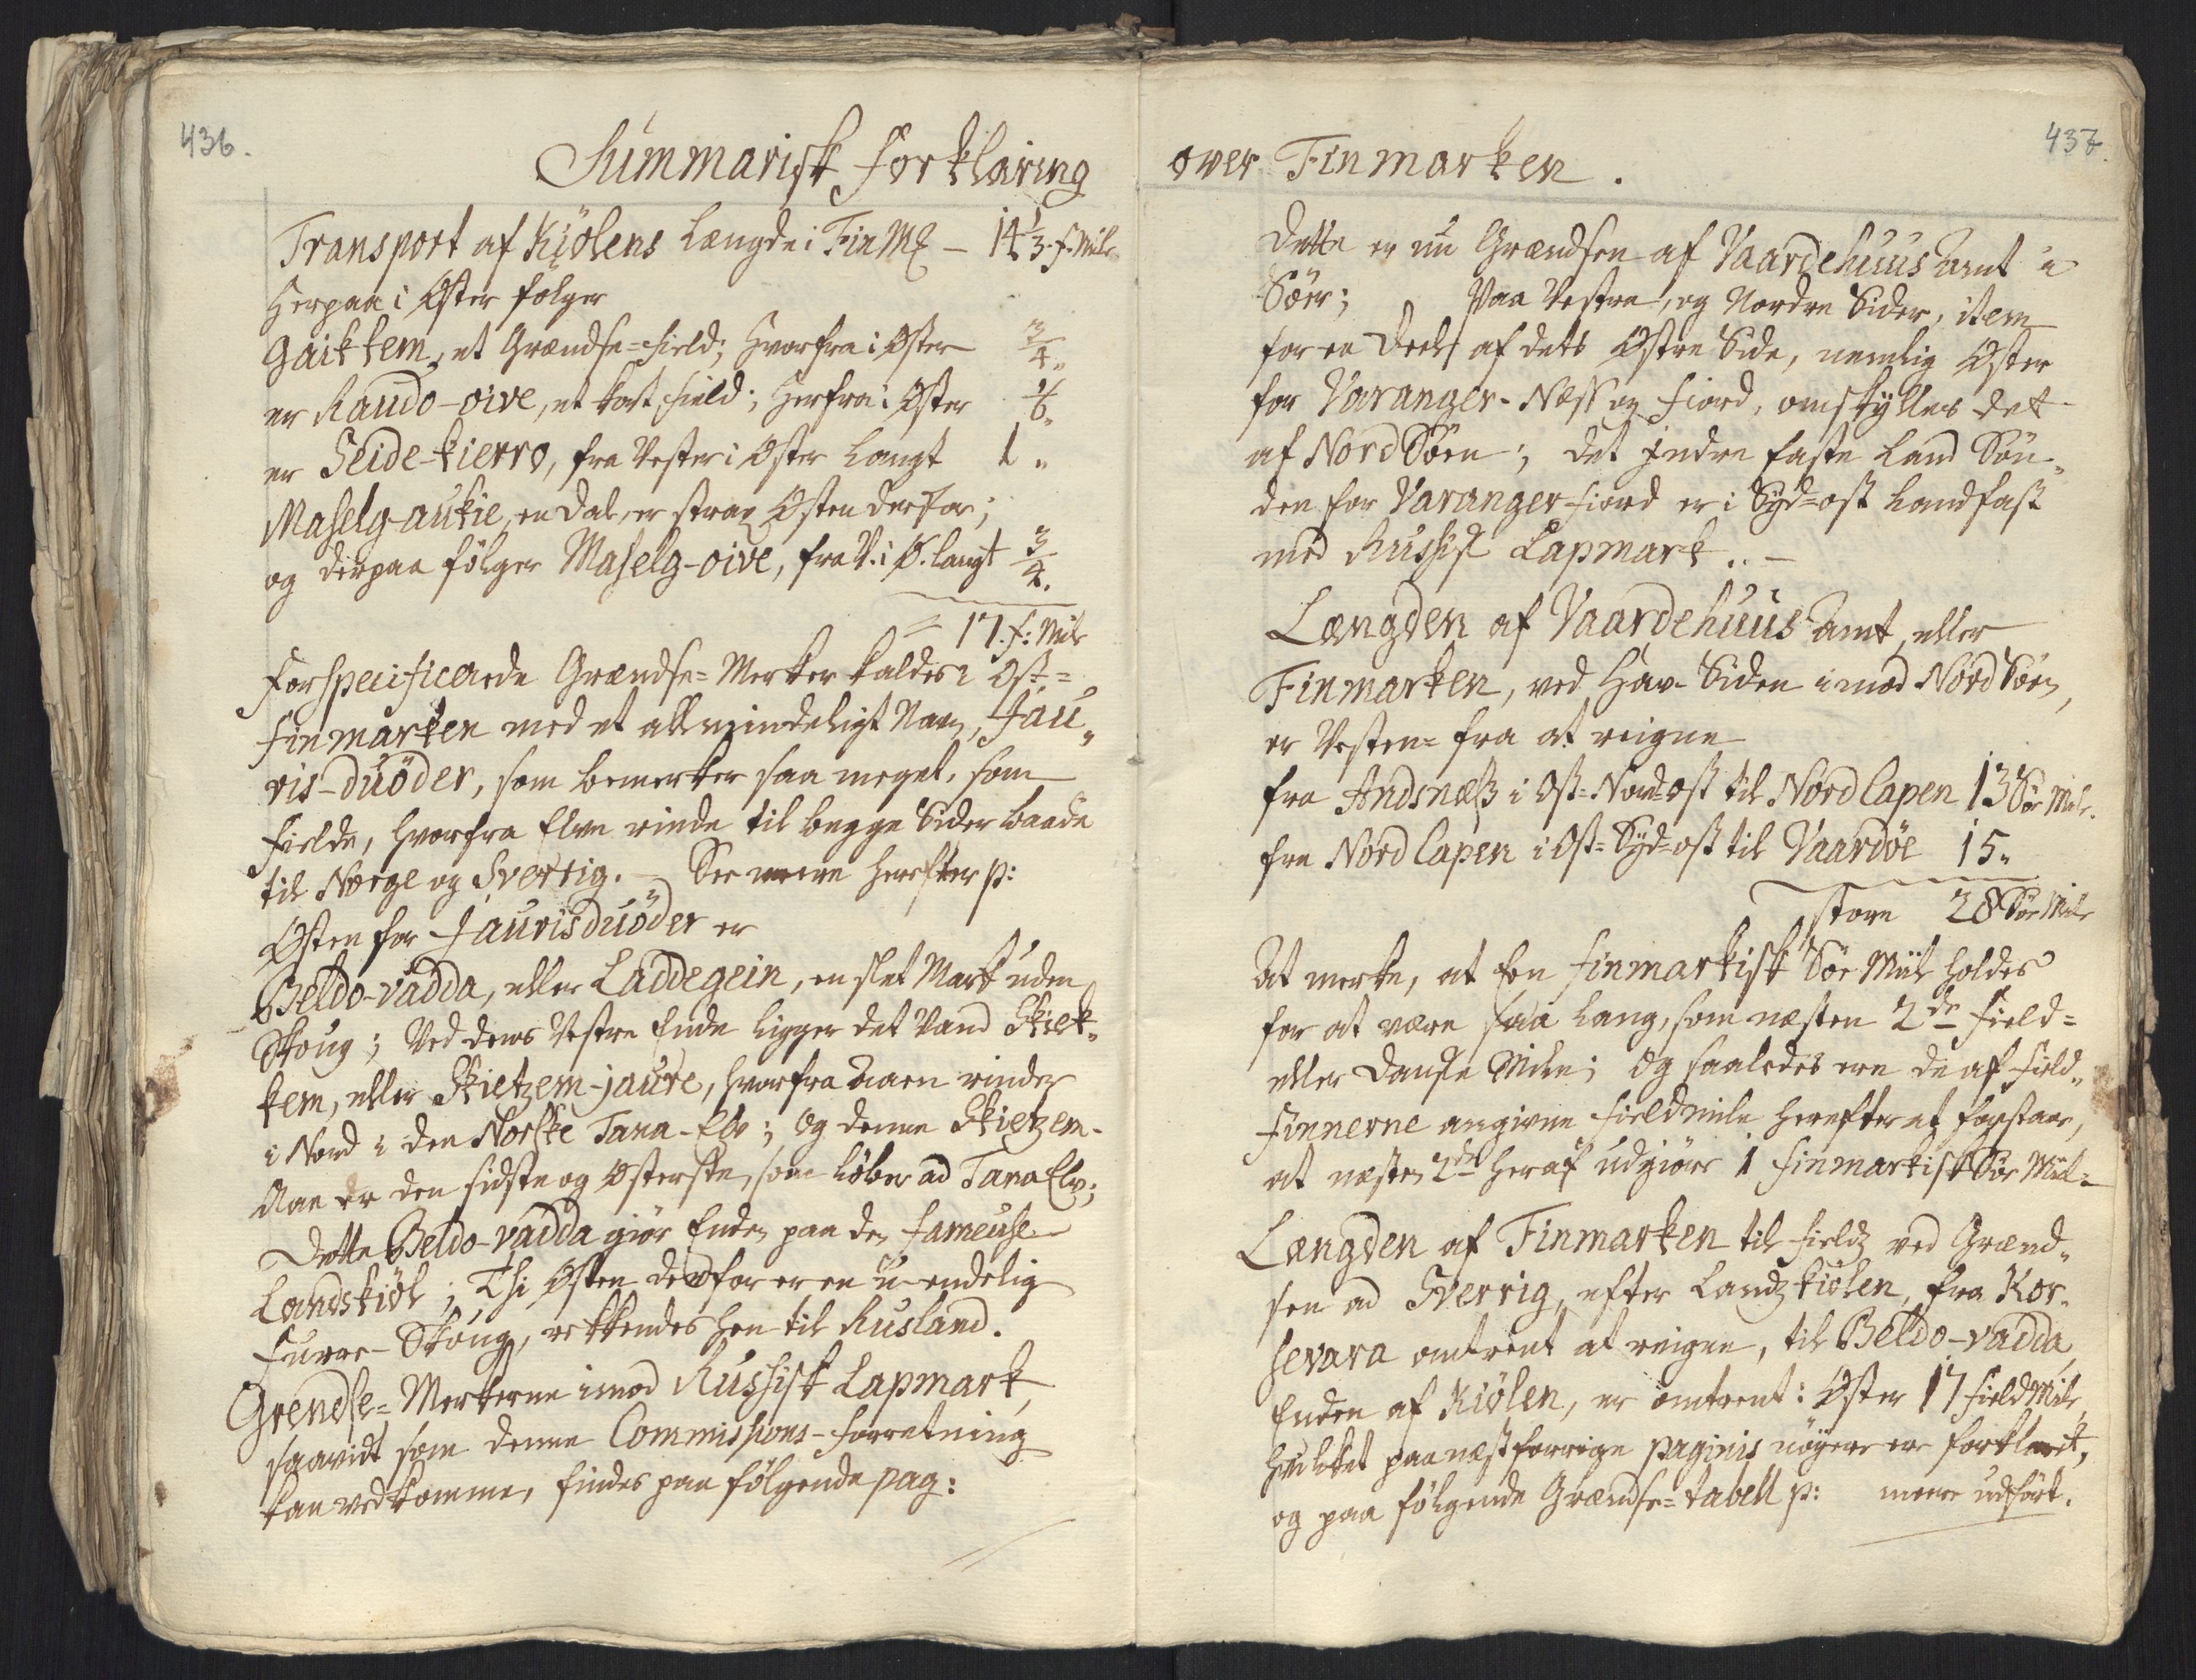 436.
Summarisk Forklaring
Transport af Kiölens Længde i FinM͞ – 14 1/3. f. Mile
Herpaa i Öster fölger
Gaikkem, et Grændse-Field; Hvorfra i Öster 3/4 „
er Raudo-oive, et kort Field; Herfra i Öster 1/6 „
er Seide-kierro, fra Vester i Öster Langt 1 „
Maselg-aukie, en Dal, er strax Östen derfor;
og derpaa fölger Maselg-oive, fra V. i Ö. langt 3/4.
= 17. f: Mile
Forspecificerede Grændse-Merker kaldes i Öst-
finmarken med et allmindeligt Navn, Jau„
ris-duöder, som bemerker saa meget, som
Fielde, hvorfra Elve rinde til begge Sider baade
til Norge og Sverrig. – See meere herefter p:
Östen for Jaurisduöder er
Beldo-vadda, eller Laddegein, en slet Mark uden
Skoug; Ved dens Vestre Ende ligger det Vand Skiek„
kem, eller Skietzem-jaure, hvorfra Aaen rinder
i Nord i den Norske Tana-Elv; Og denne Skietzem-
Aae er den sidste og Österste, som löber ad Tana Elv;
Dette Beldo-vadda giör Enden paa den fameuse
Landskiöl; Thi Östen derfor er en u-endelig
Furre-Skoug, rekkendes hen til Rusland.
Grendse-Merkerne imod Russisk Lapmark,
saavidt som denne Commissions-Forretning
kan vedkomme, findes paa fölgende pag:
437.
over Finmarken.
Dette er nu Grændsen af Vaardehuus Amt i
Söer; Paa Vestre, og Nordre Sider, item
for en Deel af dets Östre Side, nemlig Öster
for Varanger-Næss og Fiord, omskylles det
af NordSöen; det Indre faste Land Sön„
den for Varanger-fiord er i Syd-ost Landfast
med Russisk Lapmark. . –
Længden af Vaardehuus Amt, eller
Finmarken, ved Hav-Siden imod NordSöen,
er Vesten-fra at reigne
fra Andsnæss i Ost-Nord-ost til NordCapen 13 Söe Mile.
fra NordCapen i Ost-Syd-ost til Vaardöe 15 „
store 28 Söe Mile
At merke, at Een finmarkisk Söe Miil holdes
for at være saa Lang, som næsten 2de Field-
eller Danske Mile; Og saaledes ere de af Field„
finnerne angivne Fieldmile herefter at forstaae,
at næsten 2de heraf udgiöre 1 finmarkisk Söe Miil.
Længden af Finmarken til Fields ved Grænd„
sen ad Sverrig, efter Landzkiölen, fra Kor„
sevara omtrent at reigne, til Beldo-vadda,
Enden af Kiölen, er omtrent: Öster 17 Field Mile,
Hvilket paa næstforrige paginis nöyere er forklaret,
og paa fölgende Grændse-tabell p: meere udfört.